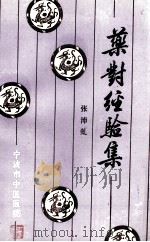 藥對經验集
张沛虬
宁波市中医医院